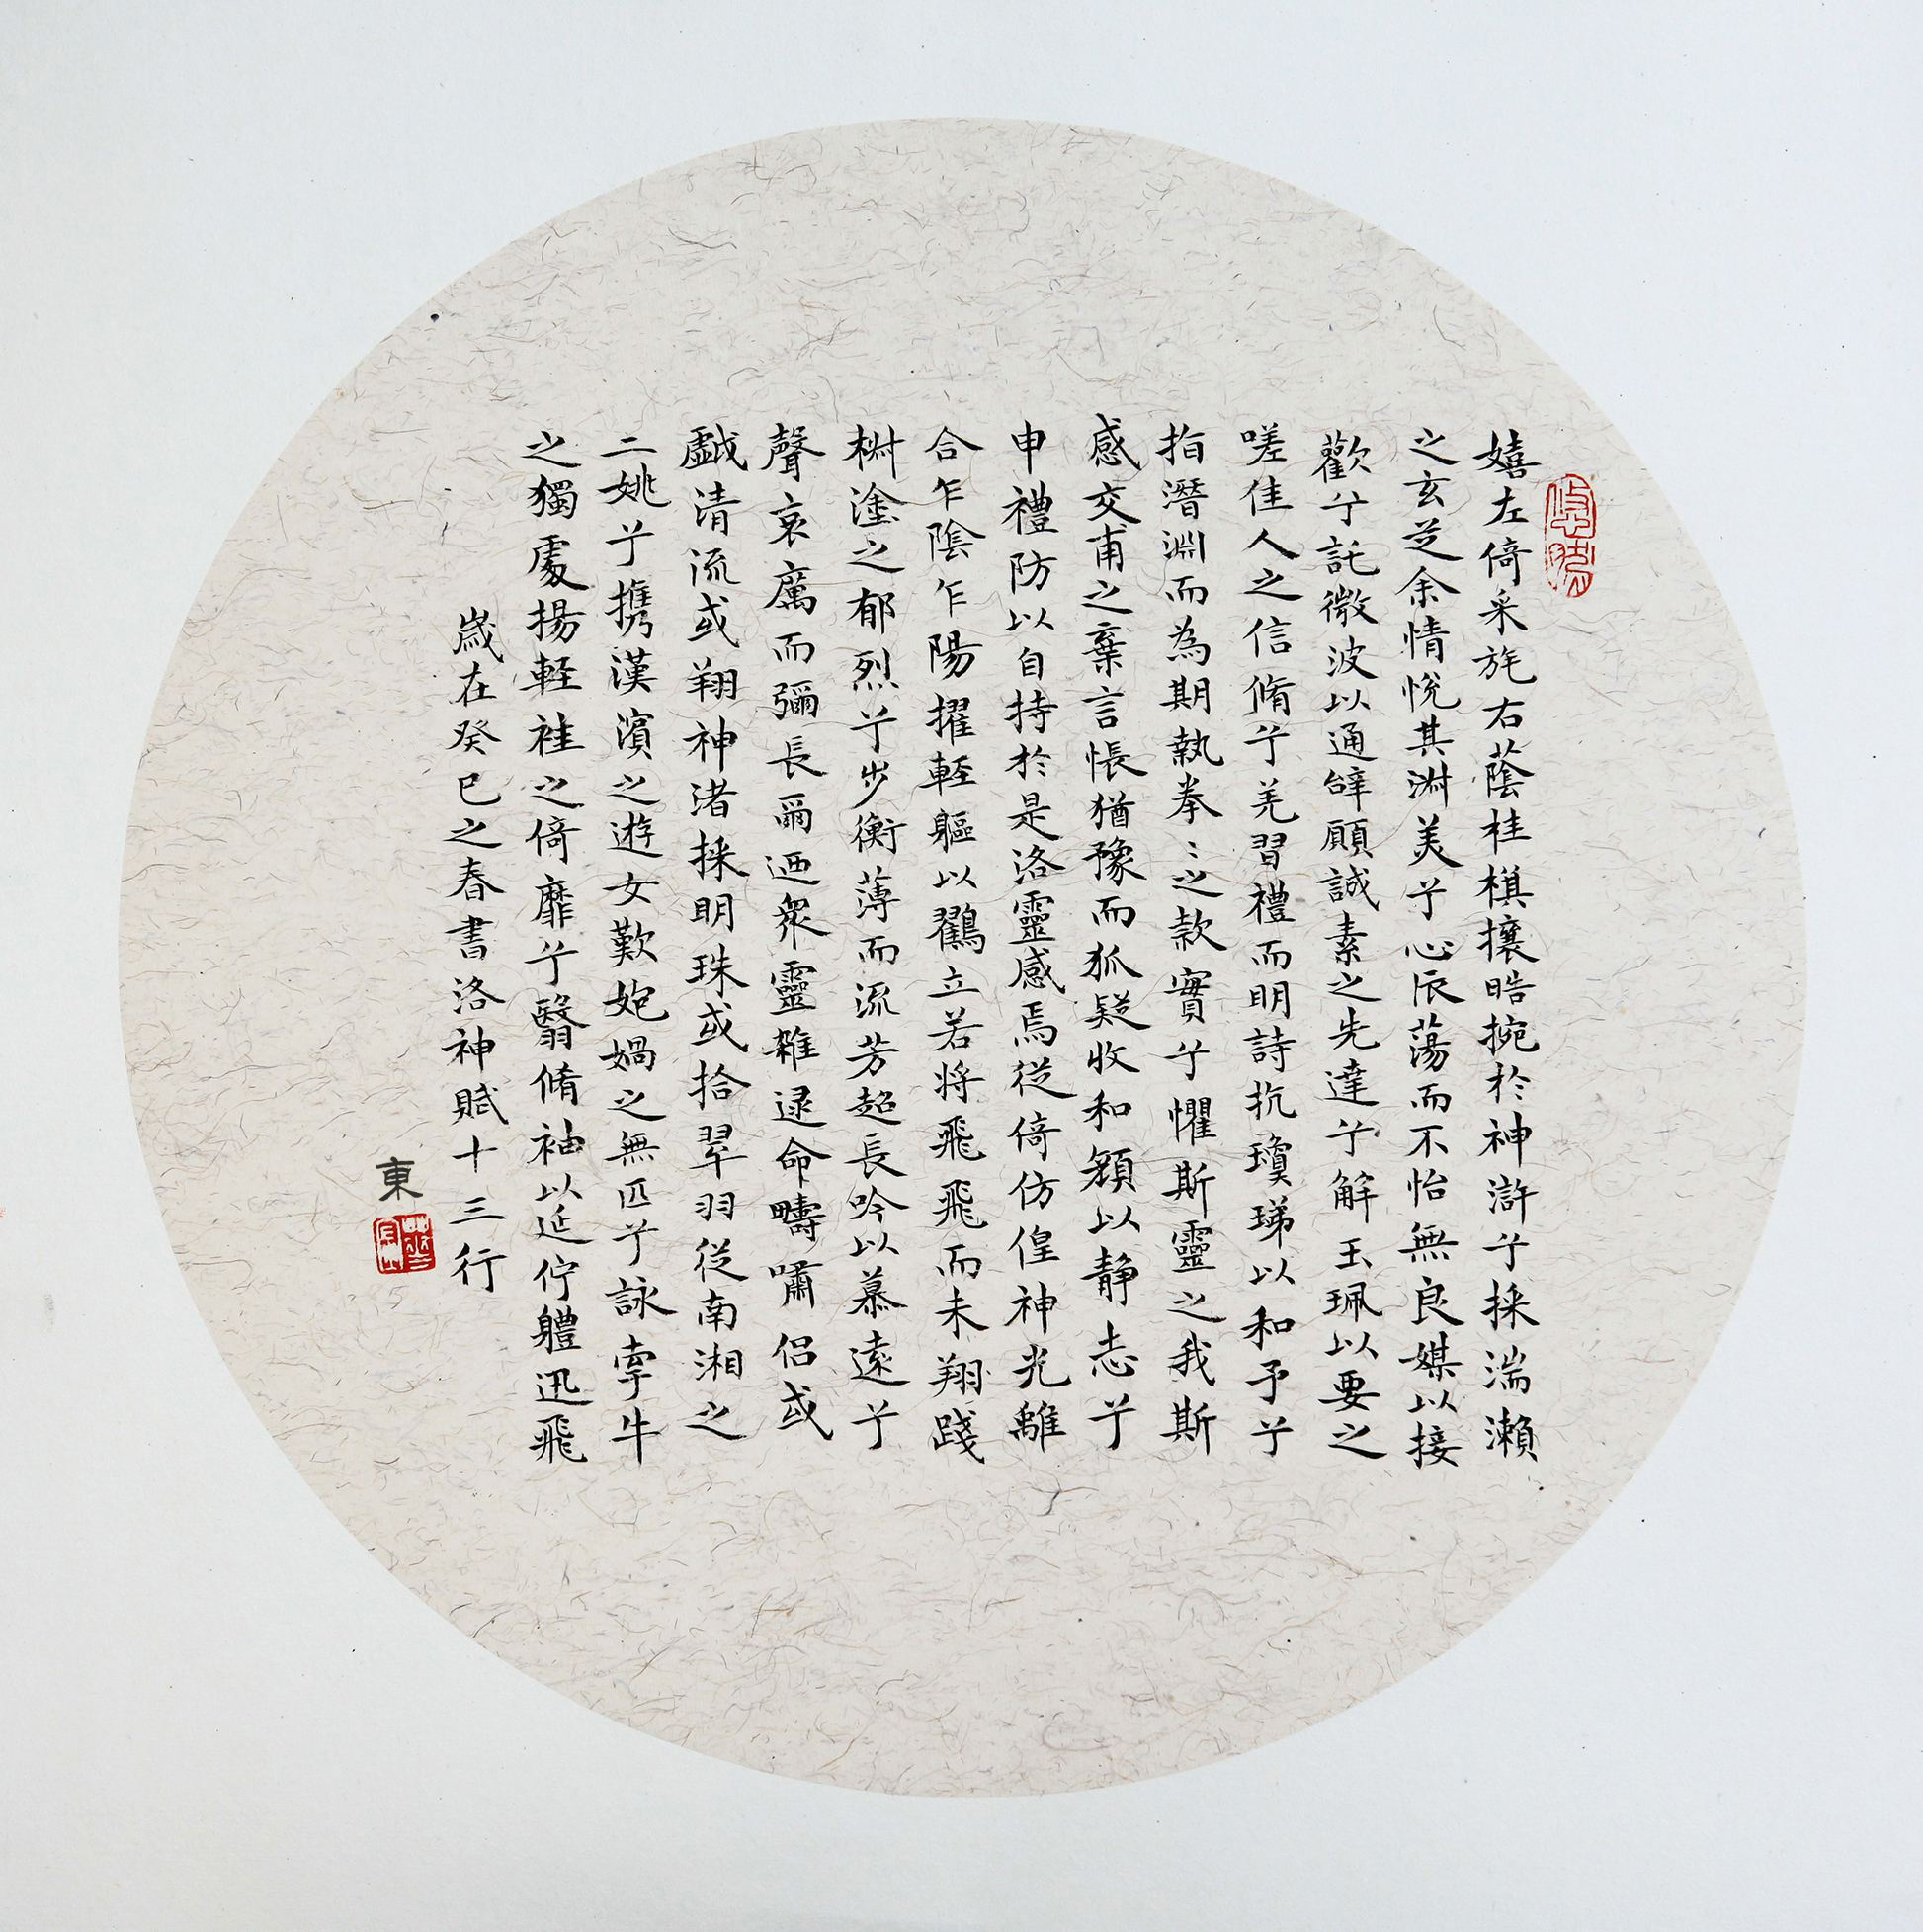 嬉左倚采旄右蔭桂棋攘晧捥於神滸兮採湍瀨
之玄芝余情悅其淵美兮心辰蕩而不怡無良媒以接
歡兮託微波以通辭願誠素之先達兮解玉珮以要之
嗟佳人之信脩兮羌習禮而明詩抗瓊珶以和予兮
指潛淵而為期執拳〻之款實兮懼斯靈之我斯
感交甫之棄言悵猶豫而狐疑收和顏以静志兮
申禮防以自持於是洛靈感焉從倚仿偟神光離
合乍陰乍陽擢輕軀以鸖立若將飛飛而未翔踐
椒塗之郁烈兮步衡薄而流芳超長吟以慕遠兮
聲哀厲而彌長爾迺衆靈雜逯命疇嘯侣或
戲清流或翔神渚採明珠或拾翠羽從南湘之
二姚兮携漢濱之遊女歎炮媧之無匹兮詠牽牛
之獨處揚輕袿之倚靡兮翳脩袖以延佇軆迅飛
歲在癸巳之春書洛神賦十三行
東